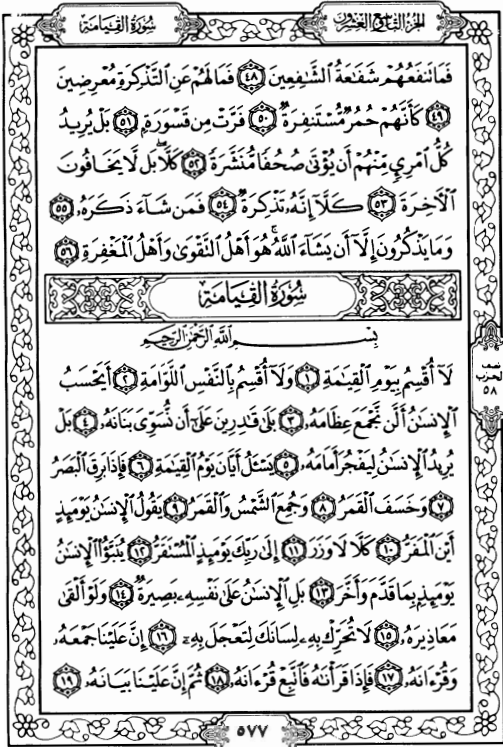 سُورَةُ القِيَامَةِ
الجُزْءُ التَّاسِعُ وَالعِشْرُونَ
فَمَا تَنفَعُهُمْ شَفَٰعَةُ ٱلشَّٰفِعِينَ ٤٨ فَمَا لَهُمْ عَنِ ٱلتَّذْكِرَةِ مُعْرِضِينَ
٤٩ كَأَنَّهُمْ حُمُرٌ مُّسْتَنفِرَةٌ ٥٠ فَرَّتْ مِن قَسْوَرَةٍۭ ٥١ بَلْ يُرِيدُ
كُلُّ ٱمْرِئٍ مِّنْهُمْ أَن يُؤْتَىٰ صُحُفًا مُّنَشَّرَةً ٥٢ كَلَّا ۖ بَل لَّا يَخَافُونَ
ٱلْأَخِرَةَ ٥٣ كَلَّآ إِنَّهُۥ تَذْكِرَةٌ ٥٤ فَمَن شَآءَ ذَكَرَهُۥ ٥٥
وَمَا يَذْكُرُونَ إِلَّآ أَن يَشَآءَ ٱللَّهُ ۚ هُوَ أَهْلُ ٱلتَّقْوَىٰ وَأَهْلُ ٱلْمَغْفِرَةِ ٥٦
سُورَةُ القِيَامَةِ
بِسْمِ ٱللَّهِ ٱلرَّحْمَٰنِ ٱلرَّحِيمِ
لَآ أُقْسِمُ بِيَوْمِ ٱلْقِيَٰمَةِ ١ وَلَآ أُقْسِمُ بِٱلنَّفْسِ ٱللَّوَّامَةِ ٢ أَيَحْسَبُ
ٱلْإِنسَٰنُ أَلَّن نَّجْمَعَ عِظَامَهُۥ ٣ بَلَىٰ قَٰدِرِينَ عَلَىٰٓ أَن نُّسَوِّىَ بَنَانَهُۥ ٤ بَلْ
يُرِيدُ ٱلْإِنسَٰنُ لِيَفْجُرَ أَمَامَهُۥ ٥ يَسْـَٔلُ أَيَّانَ يَوْمُ ٱلْقِيَٰمَةِ ٦ فَإِذَا بَرِقَ ٱلْبَصَرُ
٧ وَخَسَفَ ٱلْقَمَرُ ٨ وَجُمِعَ ٱلشَّمْسُ وَٱلْقَمَرُ ٩ يَقُولُ ٱلْإِنسَٰنُ يَوْمَئِذٍ
أَيْنَ ٱلْمَفَرُّ ١٠ كَلَّا لَا وَزَرَ ١١ إِلَىٰ رَبِّكَ يَوْمَئِذٍ ٱلْمُسْتَقَرُّ ١٢ يُنَبَّؤُا۟ ٱلْإِنسَٰنُ
يَوْمَئِذٍۭ بِمَا قَدَّمَ وَأَخَّرَ ١٣ بَلِ ٱلْإِنسَٰنُ عَلَىٰ نَفْسِهِۦ بَصِيرَةٌ ١٤ وَلَوْ أَلْقَىٰ
مَعَاذِيرَهُۥ ١٥ لَا تُحَرِّكْ بِهِۦ لِسَانَكَ لِتَعْجَلَ بِهِۦٓ ١٦ إِنَّ عَلَيْنَا جَمْعَهُۥ
وَقُرْءَانَهُۥ ١٧ فَإِذَا قَرَأْنَٰهُ فَٱتَّبِعْ قُرْءَانَهُۥ ١٨ ثُمَّ إِنَّ عَلَيْنَا بَيَانَهُۥ ١٩
نصف
الحزب
٥٨
٥٧٧